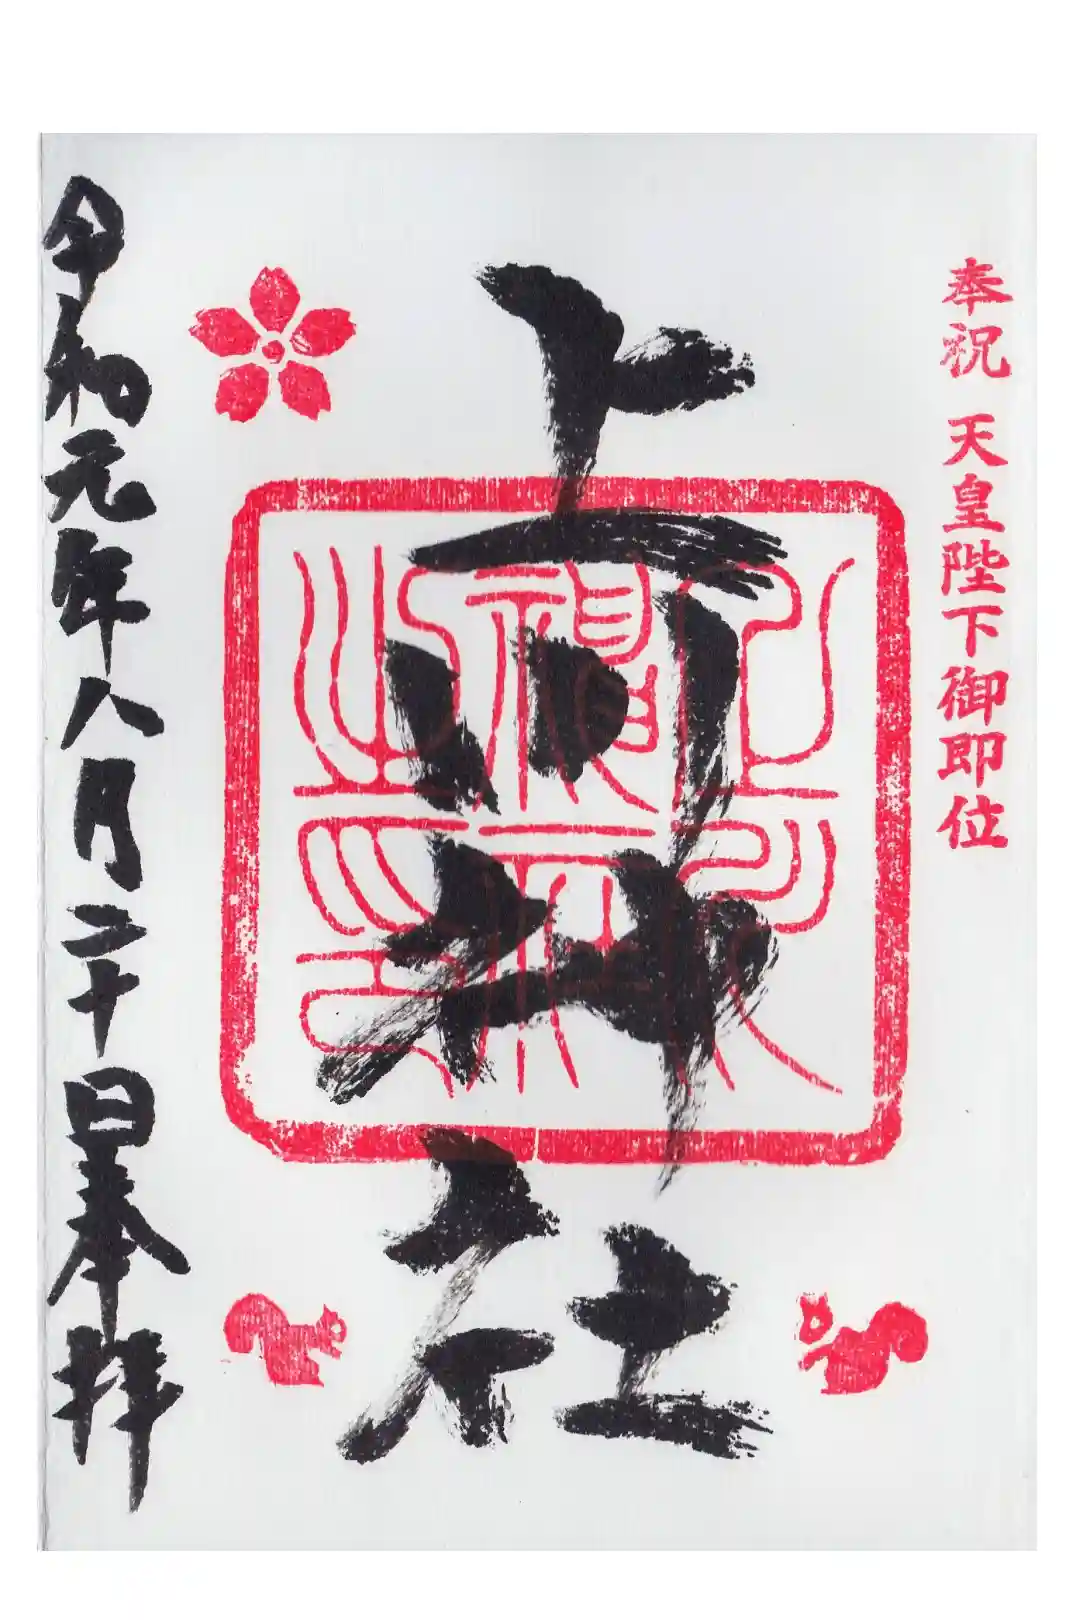 奉祝 天皇陛下御即位
上川神社
令和元年八月二十日奉拝